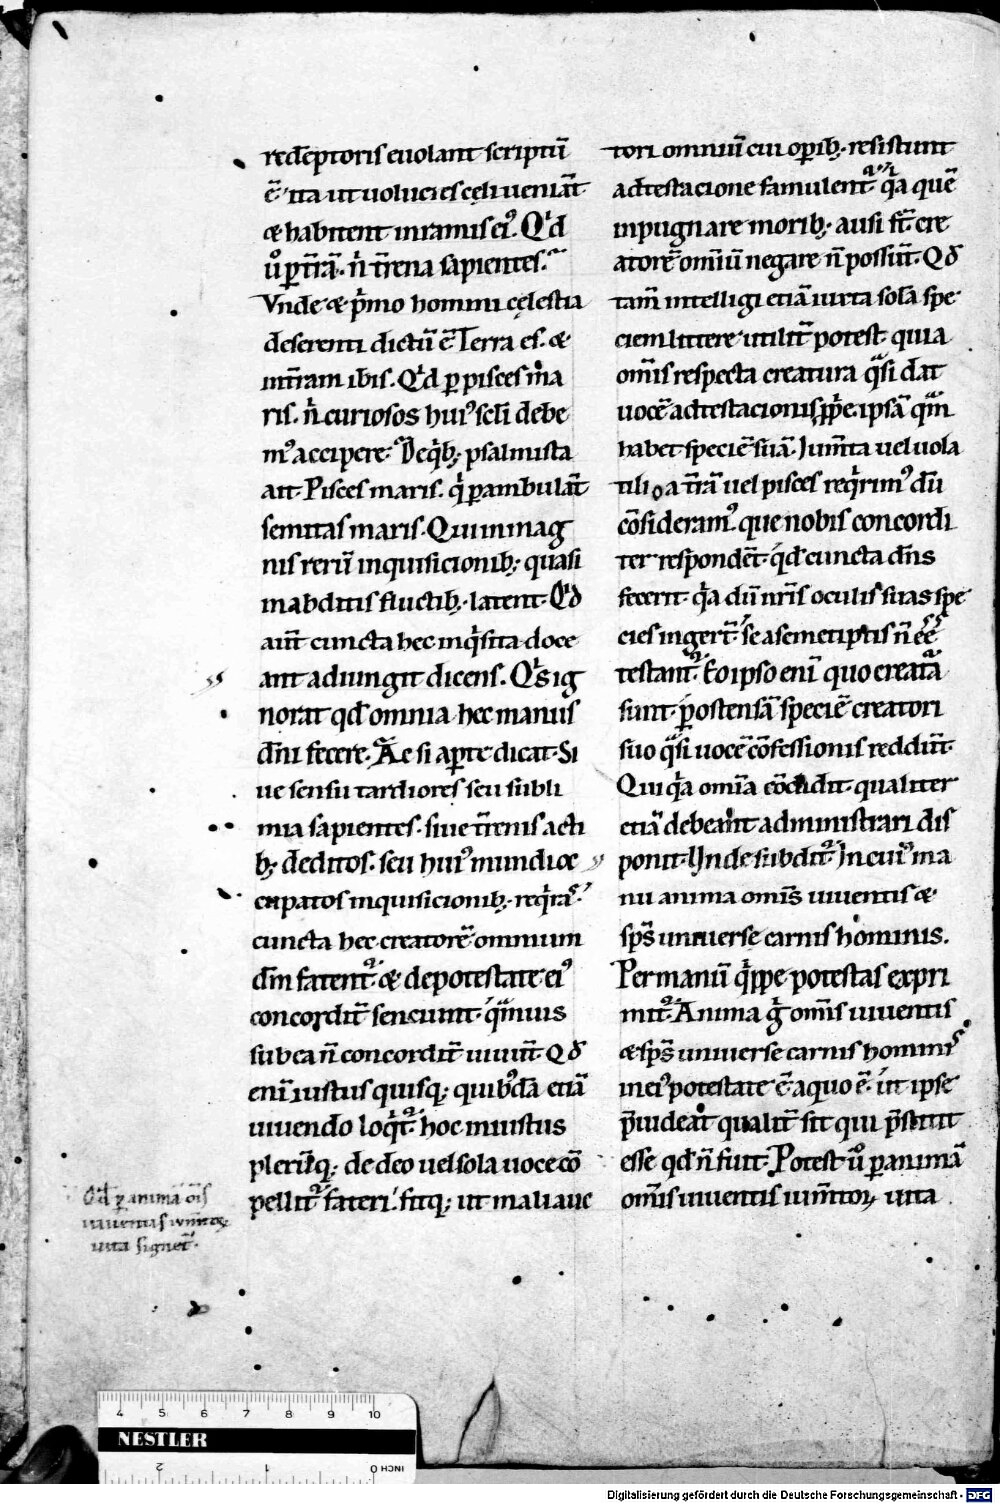 redẽptoris euolant scriptũ
ẽ. ita ut uolucres cęli ueniãt
& habitent inramis ei᷒. Qͥd
ùo ꝑ t̃rã. ñ t̃rena sapientes.
Vnde & pͥmo homini cęlestia
deserenti dictũ ẽ Terra es. &
int̃ram ibis. Qͥd ꝑ pisces ma
ris. ñ curiosos hui᷒ sc̃li debe
m᷒ accipere. De qͥb; psalmista
ait. Pisces maris. qͥ ꝑambulãt
semitas maris. Qui in mag
nis rerũ inquisicionib; quasi
inabditis fluctib; latent. Qͥd
aũt cuncta hec inqͥsita doce
ant adiungit dicens. Qͥs ig
norat qd̃ omnia hec manus
dñi fecere. Ac si aꝑte dicat. Si
ue sensu tardiores seu subli
mia sapientes. siue t̃renis acti
b; deditos. seu hui᷒ mundi oc
cupatos inquisicionib; reqͥras.
cuncta hec creatorẽ omnium
dm̃ fatent᷑. & depotestate ei᷒
concordit̃ senciunt. qͣmuis
sub ea ñ concordit̃ uiuũt. Qd̃
enĩ iustus quisq; quib᷒dã etiã
uiuendo loqͥt᷑. hoc iniustus
plerũq; de deo uel sola uoce cõ
pellit᷑ fateri. fitq; ut mali auc
Qd̃ ꝑ animã õis
uiuentis iumẽtoꝝ
uita signet᷑.
tori omniũ cui oꝑib; resistunt
adtestacione famulent᷑. qͥa quẽ
inpugnare morib; ausi st̃. cre
atorẽ omniũ negare ñ possũt. Qd̃
tam̃ intelligi etiã iuxta solã spe
ciem littere utilit̃ potest. quia
om̃is respecta creatura qͣsi dat
uocẽ adtestacionis ꝓpͥe. ipsã qͣm
habet speciẽ suã. Iumẽta uel uola
tilia t̃rã uel pisces reqͥrim᷒ dũ
cõsideram᷒. que nobis concordi
ter respondẽt. qd̃ cuncta dñs
fecerit. qͥa dũ nrĩs oculis suas spe
cies ingerũt. se a semetipsis ñ ẽẽ
testant᷑. Eo ipso enĩ quo creata
sunt. ꝑ ostensã speciẽ creatori
suo qͣsi uocẽ cõfessionis reddũt.
Qui qͥa omĩa cõdidit. qualiter
etiã debeant administrari dis
ponit. Unde subdit᷑. In cui᷒ ma
nu anima om̃is uiuentis &
sps̃ uniuerse carnis hominis.
Per manũ qͥppe potestas expri
mit᷑. Anima gͦ om̃is uiuentis
& sps̃ uniuerse carnis hominis
in ei᷒ potestate ẽ. a quo ẽ. ut ipse
p̃uideat qualit̃ sit qui p̃stitit
esse qd̃ ñ fuit. Potest ùo ꝑ animã
om̃is uiuentis iumẽtoꝝ uita
NESTLER
4 5 6 7 8 9 10
2 1 0 INCH
Digitalisierung gefördert durch die Deutsche Forschungsgemeinschaft - DFG